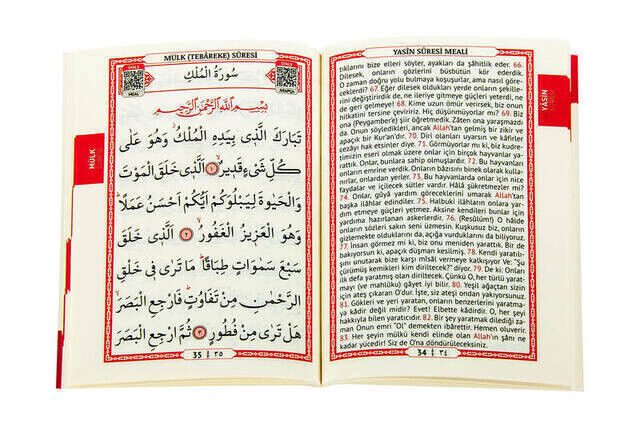 YASİN SÛRESİ MEALİ
tıklarını bize elleri söyler, ayakları da şâhitlik eder. 66.
Dilesek, onların gözlerini büsbütün kör ederdik.
O zaman doğru yolu bulmaya koşuşurlar, ama nasıl göre-
ceklerdi? 67. Eğer dilesek oldukları yerde onların şekille-
rini değiştirirdik de, ne ileriye gitmeye güçleri yeterdi, ne
de geri gelmeye! 68. Kime uzun ömür verirsek, biz onun
hilkatini tersine çeviririz. Hiç düşünmüyorlar mı? 69. Biz
ona (Peygambere) şiir öğretmedik. Zâten ona yaraşmazdı
da. Onun söyledikleri, ancak Allah'tan gelmiş bir zikir ve
apaçık bir Kur'an'dır. 70. Diri olanları uyarsın ve kâfirler
cezâyı hak etsinler diye. 71. Görmüyorlar mı ki, biz kudre-
timizin eseri olmak üzere onlar için birçok hayvanlar ya-
rattık. Onlar, bunlara sahip olmuşlardır. 72. Bu hayvanları
onların emrine verdik. Onların bâzısını binek olarak kulla-
nırlar, bir kısmını da yerler. 73. Bu hayvanlarda onlar için nice
faydalar ve içilecek sütler vardır. Hâlâ şükretmezler mi?
74. Onlar, gûyâ yardım göreceklerini umarak Allah'tan
başka ilâhlar edindiler. 75. Halbuki ilâhların onlara yar-
dım etmeye güçleri yetmez. Aksine kendileri bunlar için
yardıma hazırlanan askerlerdir. 76. (Resûlüm!) O hâlde
onların sözleri sakın seni üzmesin. Kuşkusuz biz, onların
gizlemekte olduklarını da, açığa vurduklarını da biliyoruz.
77. İnsan görmez mi ki, biz onu meniden yarattık. Bir de
bakıyorsun ki, apaçık düşman kesilmiş. 78. Kendi yaratılı-
şını unutarak bize karşı misâl vermeye kalkışıyor Ve: "Şu
çürümüş kemikleri kim diriltecek?" diyor. 79. De ki: Onları
ilk defa yaratmış olan diriltecek. Çünkü O, her türlü yarat-
mayı (ve mahlûku) gâyet iyi bilir. 80. Yeşil ağaçtan sizin
için ateş çıkaran O'dur. İşte, siz ateşi ondan yakıyorsunuz.
81. Gökleri ve yeri yaratan, onların benzerlerini yaratma-
ya kâdir değil midir? Evet! Elbette kâdirdir. O, her şeyi
hakkıyla bilen yaratıcıdır. 82. Bir şey yaratmak dilediği za-
man Onun emri "Ol" demekten ibârettir. Hemen oluverir.
83. Her şeyin mülkü kendi elinde olan Allah'ın şânı ne
kadar yücedir! Siz de O'na döndürüleceksiniz.
34 ٣٤
YÂSİN
MÜLK (TEBÂREKE) SÛRESİ
سُورَةُ الْمُلْكِ
MEAL
بِسْمِ اللّٰهِ الرَّحْمٰنِ الرَّحِيمِ
تَبَارَكَ الَّذِى بِيَدِهِ الْمُلْكُ وَهُوَ عَلٰى
كُلِّ شَىْءٍ قَدِيرٌ ﴿١﴾ اَلَّذِى خَلَقَ الْمَوْتَ
وَالْحَيٰوةَ لِيَبْلُوَكُمْ اَيُّكُمْ اَحْسَنُ عَمَلًا
وَهُوَ الْعَزِيزُ الْغَفُورُ ﴿٢﴾ اَلَّذِى خَلَقَ
سَبْعَ سَمٰوَاتٍ طِبَاقًا مَا تَرٰى فِى خَلْقِ
الرَّحْمٰنِ مِنْ تَفَاوُتٍ فَارْجِعِ الْبَصَرَ
هَلْ تَرٰى مِنْ فُطُورٍ ﴿٣﴾ ثُمَّ ارْجِعِ الْبَصَرَ
35 ٣٥
MÜLK